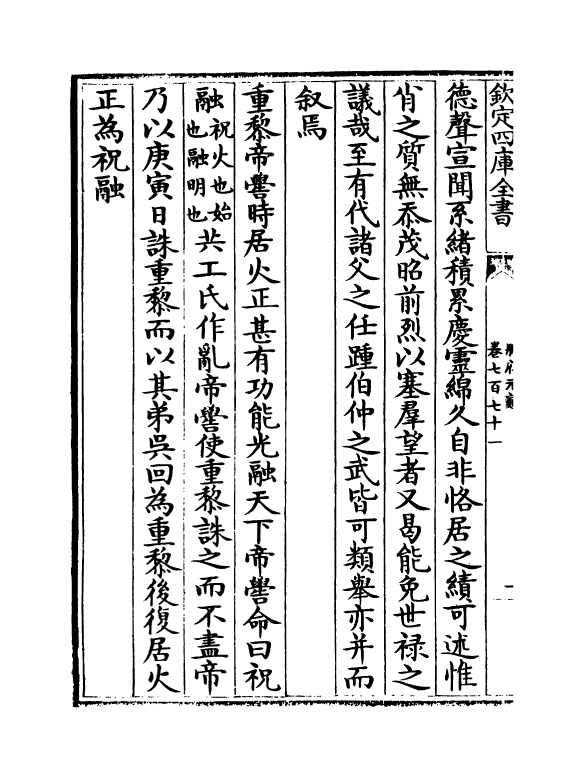 欽定四庫全書
卷七百七十一
德聲宣聞系緒積累慶靈綿久自非恪居之績可述惟
肖之質無忝茂昭前烈以塞羣望者又曷能免世禄之
議哉至有代諸父之任踵伯仲之武皆可類舉亦并而
叙焉
重黎帝嚳時居火正甚有功能光融天下帝嚳命曰祝
融祝火也始也融明也共工氏作亂帝嚳使重黎誅之而不盡帝
乃以庚寅日誅重黎而以其弟吳回為重黎後復居火
正為祝融